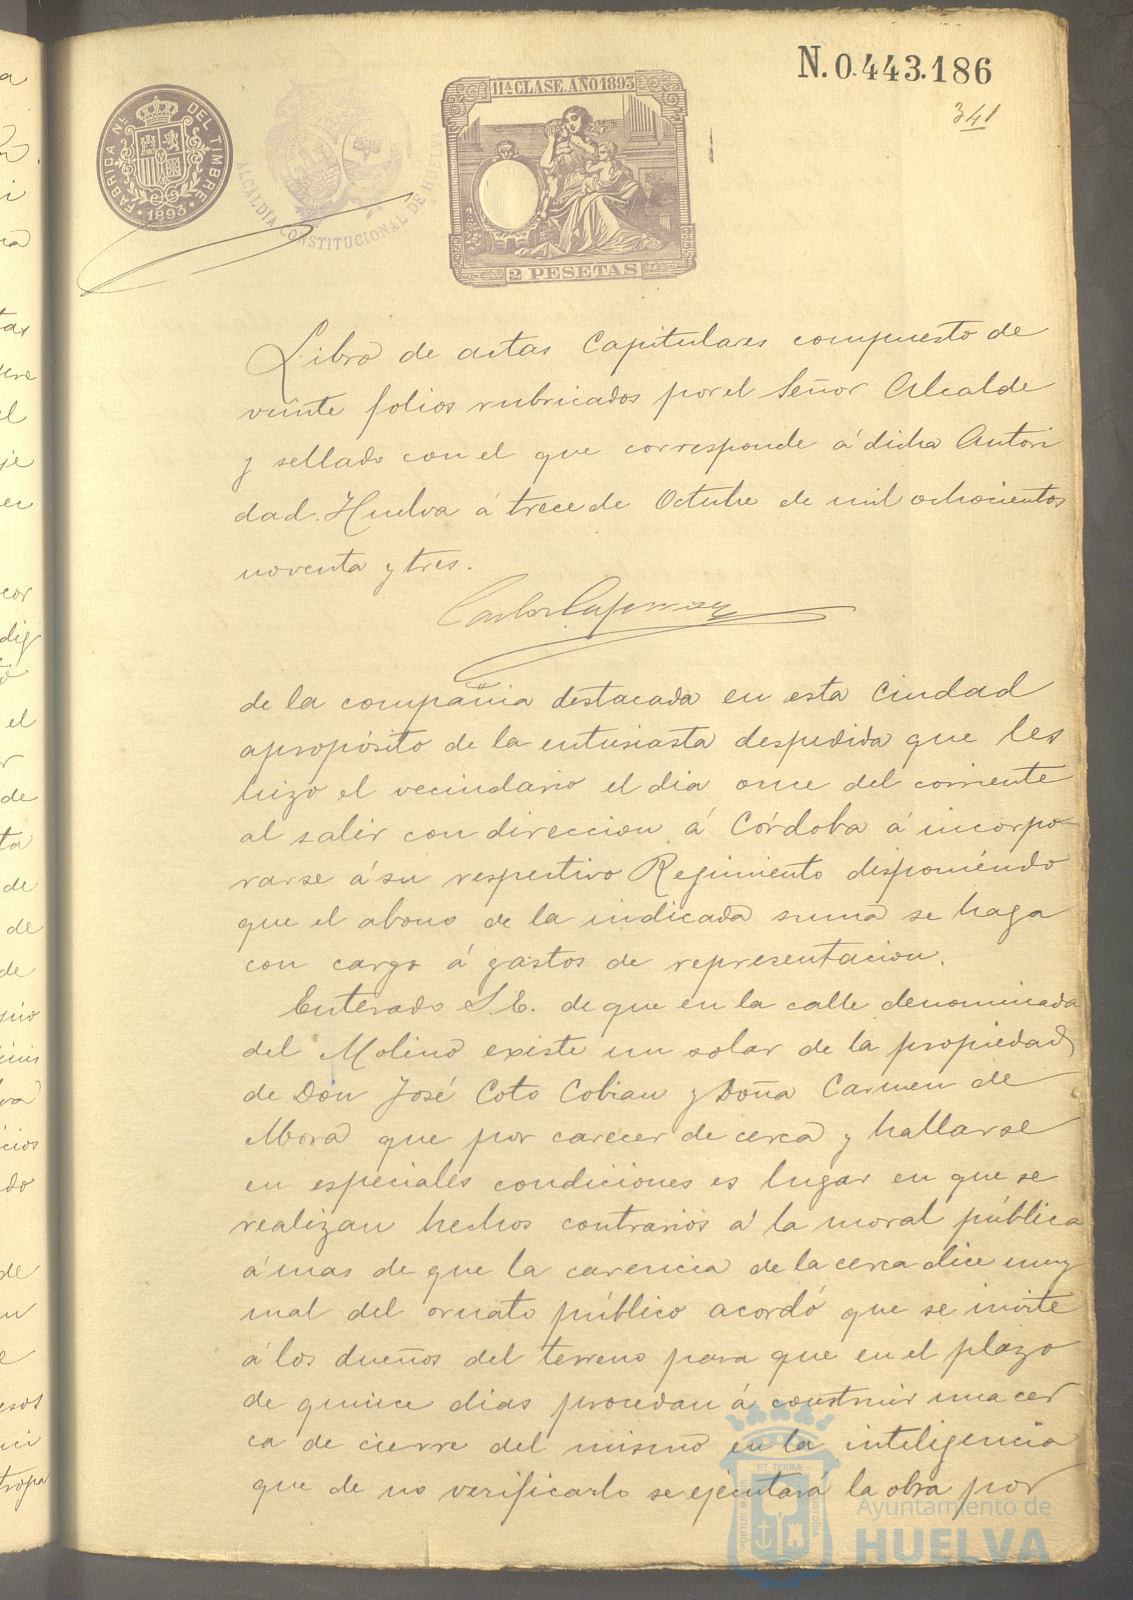 N. 0.443.186
341
FABRICA N.L DEL TIMBRE
1893
ALCALDIA CONSTITUCIONAL DE HUELVA
11.ª CLASE. AÑO 1893
2 PESETAS
Libro de actas Capitulares compuesto de
veinte folios rubricados por el Señor Alcalde
y sellado con el que corresponde á dicha Autori
dad. Huelva á trece de Octubre de mil ochocientos
noventa y tres.
Carlos
de la compañia destacada en esta Ciudad
apropósito de la entusiasta despedida que les
hizo el vecindario el dia once del corriente
al salir con direccion á Córdoba á incorpo-
rarse á su respectivo Regimiento disponiéndo
que el abono de la indicada suma se haga
con cargo á gastos de representacion.
Enterado S. E. de que en la calle denominada
del Molino existe un solar de la propiedad
de Don José Coto Cobian y Doña Carmen de
Mora que por carecer de cerca y hallarse
en especiales condiciones es lugar en que se
realizan hechos contrarios á la moral pública
á mas de que la carencia de la cerca dice muy
mal del ornato público acordó que se invite
á los dueños del terreno para que en el plazo
de quince dias procedan á construir una cer
ca de cierre del mismo en la inteligencia
que de no verificarlo se ejecutará la obra por
Ayuntamiento de
HUELVA